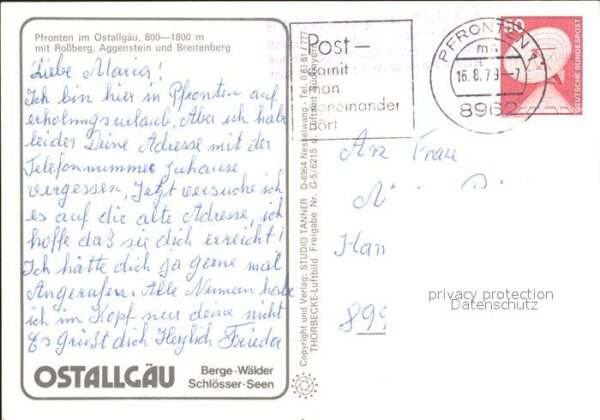 Pfronten im Ostallgäu, 800—1800 m
mit Roßberg, Aggenstein und Breitenberg
Liebe Maria!
Ich bin hier in Pfronten auf
erholungsurlaub, Aber ich habe
leider Deine Adresse mit der
Telefonnummer zuhause
vergessen, Jetzt versuche ich
es auf die alte Adresse, ich
hoffe daß sie dich erreicht!
Ich hätte dich ja gerne mal
Angerufen. Alle Numern habe
ich im Kopf nur deine nicht
Es grüßt dich Herzlich Frieda
OSTALLGÄU
Berge · Wälder
Schlösser · Seen
Copyright und Verlag: STUDIO TANNER D-8964 Nesselwang · Tel. 0 83 61 / 777
THORBECKE-Luftbild Freigabe Nr. G-5/6215 d.
Post—
damit
man
voneinander
hört
PFRONTEN 1
16.8.79-7
8962
50
DEUTSCHE BUNDESPOST
An Frau
899
privacy protection
Datenschutz